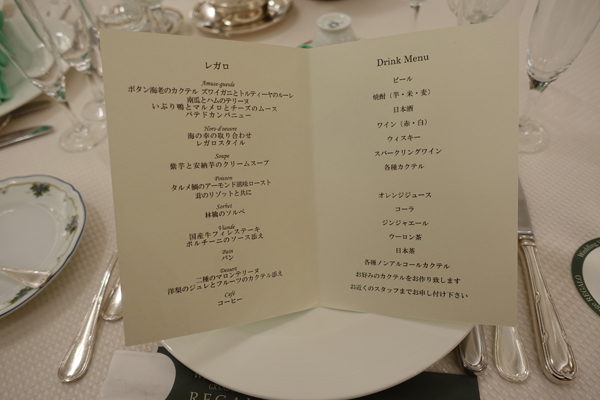 レガロ
Amuse-gueule
ボタン海老のカクテル ズワイガニとトルティーヤのルーレ
南瓜とハムのテリーヌ
いぶり鴨とマルメロとチーズのムース
パテドカンパニュー
Hors-d'oeuvre
海の幸の取り合わせ
レガロスタイル
Soupe
紫芋と安納芋のクリームスープ
Poisson
タルメ鯛のアーモンド風味ロースト
茸のリゾットと共に
Sorbet
林檎のソルベ
Viande
国産牛フィレステーキ
ポルチーニのソース添え
Pain
パン
Dessert
二種のマロンテリーヌ
洋梨のジュレとフルーツのカクテル添え
Café
コーヒー
Drink Menu
ビール
焼酎（芋・米・麦）
日本酒
ワイン（赤・白）
ウィスキー
スパークリングワイン
各種カクテル
オレンジジュース
コーラ
ジンジャエール
ウーロン茶
日本茶
各種ノンアルコールカクテル
お好みのカクテルをお作り致します
お近くのスタッフまでお申し付け下さい